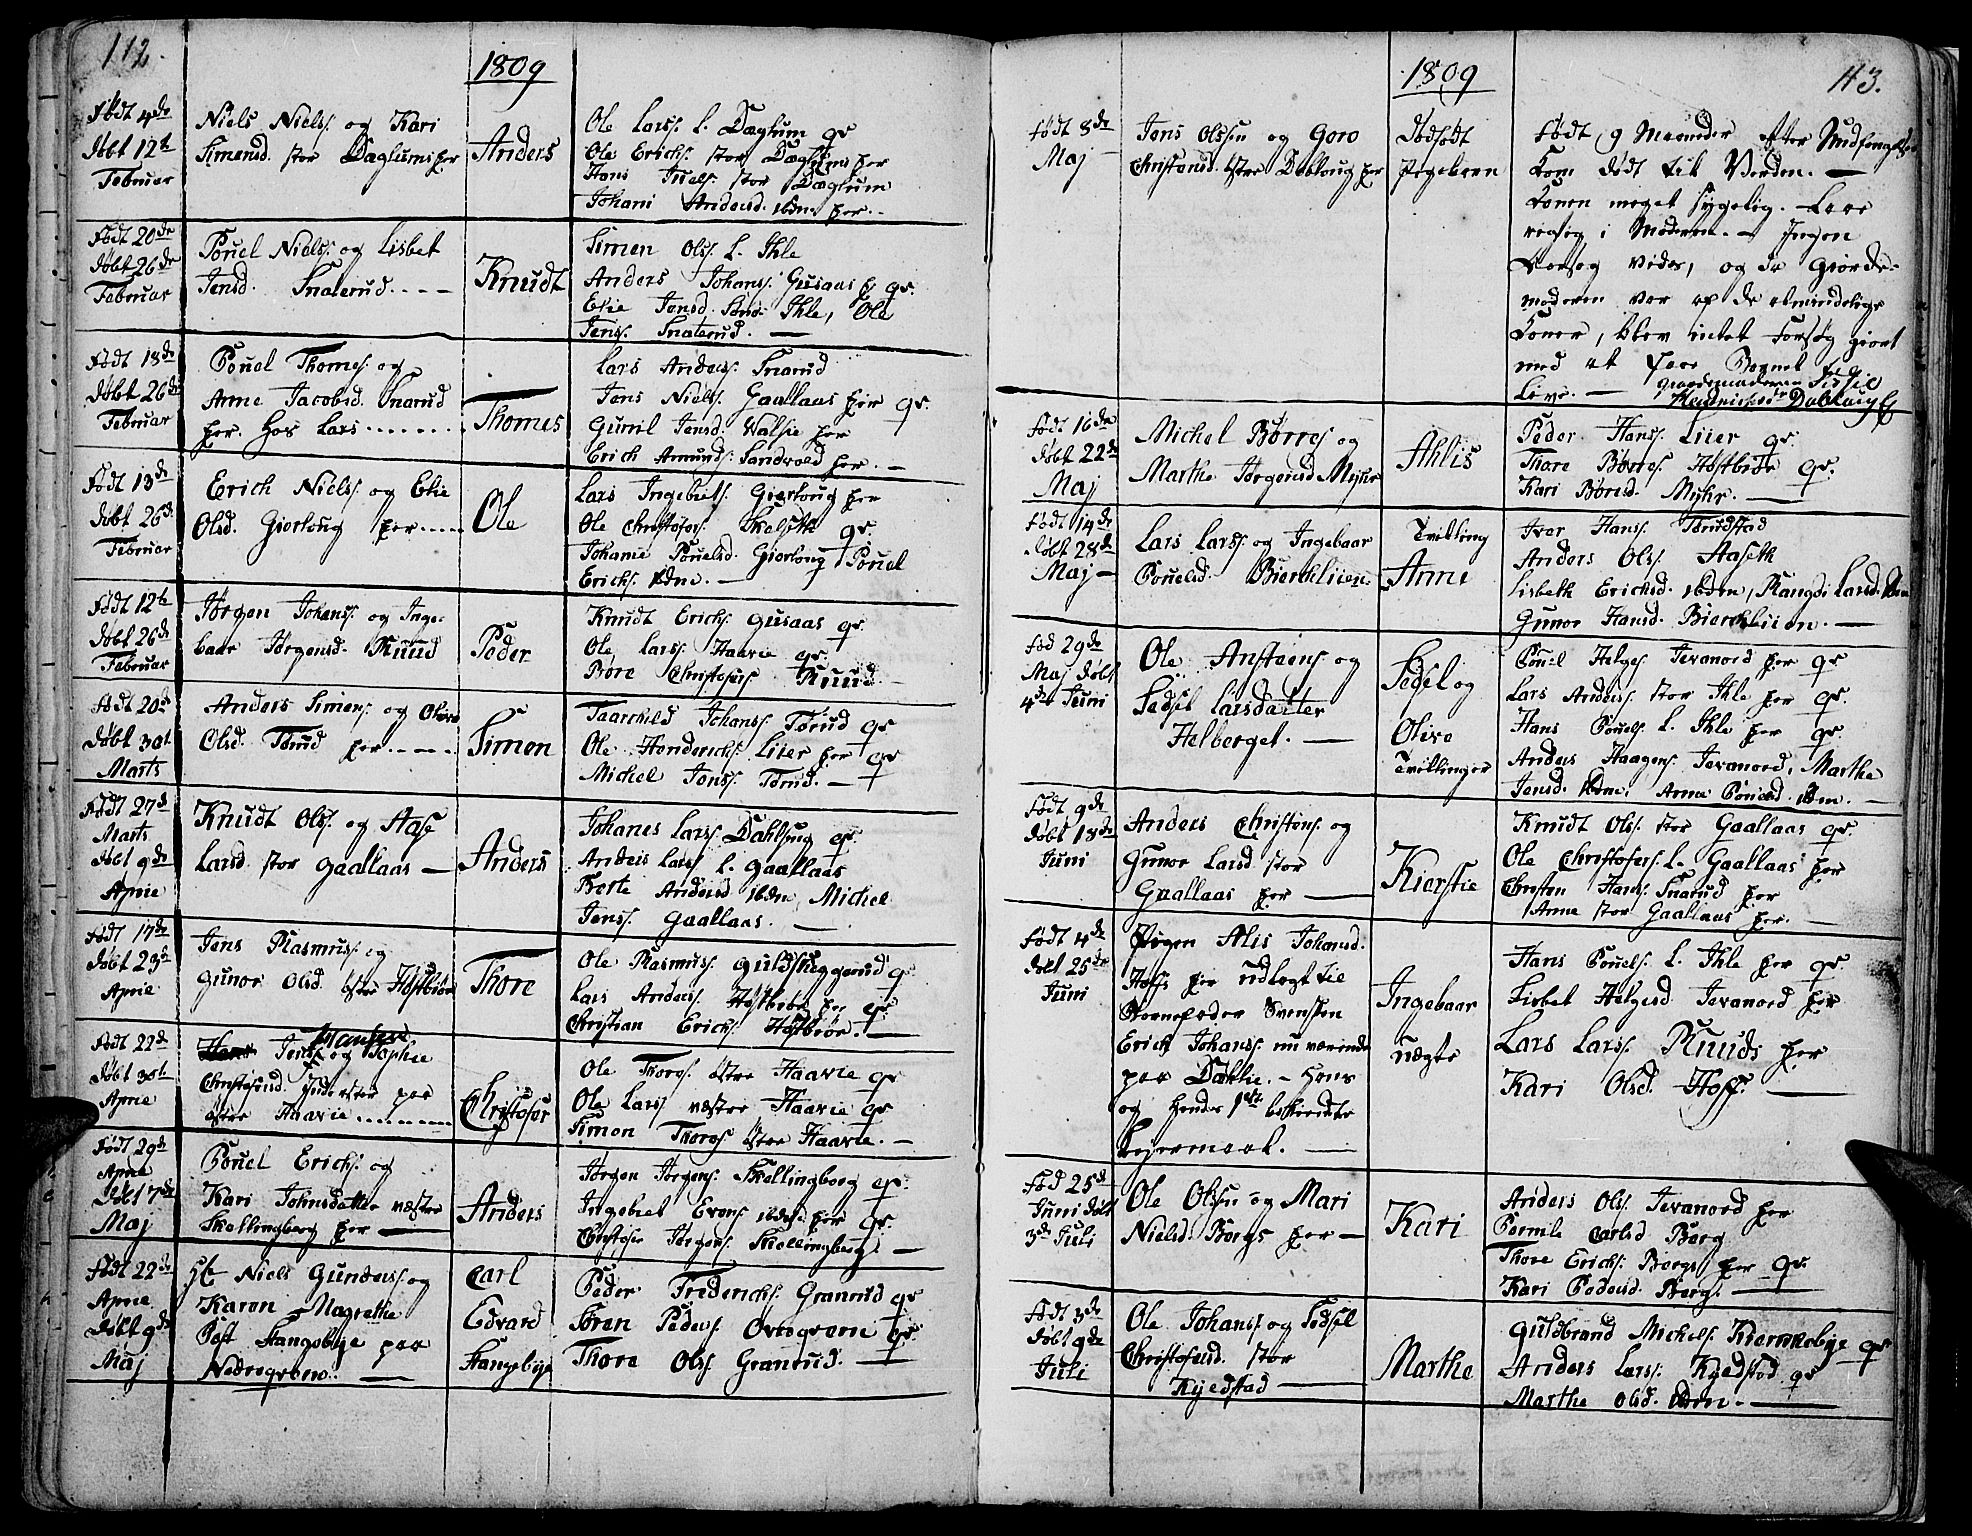 112.
1809
Født 4de
Døbt 12te
Februar
Niels Nielss. og Kari
Simensd. stor Dæglums hør
Anders
Ole Larss. l. Dæglum gr.
Ole Erichs. stor Dæglums hør
Hans Juels. stor Dæglum
Johani Andersd. ibdm hør.
Født 20de
Døbt 26de
Februar
Pouel Nielss. og Lisbet
Jensd. Snaterud
Knudt
Simen Olss. L. Ihle
Anders Johanss. Gusaas h gr.
Elie Jonsd. Ihle, Ole
Jenss. Snaterud.
Født 18de
Døbt 26de
Februar
Pouel Thomes. og
Anne Jacobsd. Snarud
hør. hos Lars
Thomes
Lars Anders. Snarud
Jens Nielss. Gaallaas hør gr.
Gunil Jensd. Walsie hør
Erich Amunds. Sandvold hør.
Født 13de
Døbt 26d.
Februar
Erich Nielss. og Elie
Olsd. Giørlong hør
Ole
Lars Ingebrets. Giørloug hør
Ole Christofers. Skalsett gr.
Johanne Pouelsd. Giørloug, Pouel
Erichs. ibdm.
Født 12te
Døbt 26de
Februar
Jørgen Johanss. og Inge-
baar Jørgensd. Ruud
Peder
Knudt Erichs. Gusaas gr.
Ole Larss. Haavie gr.
Børe Christofers. Ruud
Født 20de
Døbt 30te
Marts
Anders Simens. og Olava
Olsd. Tørud hør
Simon
Taarchild Johanss. Tørud gr.
Ole Henderichs. Liier hør gr
Michel Jonss. Tørud.
Født 27d
Marts
Døbt 9de
Aprie
Knudt Olss. og Aase
Larsd. stor Gaallaas
Anders
Johanes Larss. Dahlsug gr.
Anders Larss. l. Gaallaas
Berte Andersd ibdm, Michel
Jenss. Gaallaas.
Født 17de
Døbt 23de
Aprie
Jens Rasmuss. og
Gunor Olsd. østre Høstbiør
Thore
Ole Rasmuss. Guldshaggerud gr
Lars Anderss. Høstbiør hør gr.
Christian Erichs. Høstbiør.
Født 22de
Døbt 30te
Aprie
Jens og Sophie
Christofersd. Inderster paa
østre Haavie
Christofer
Ole Thoross. østre Haavie gr.
Ole Larss. væstre Haavie gr.
Simon Thoross. østre Haavie.
Født 29de
Aprie
Døbt 7de
Maj
Pouel Erichs. og
Kari Johnsdatter væstre
Skallingberg hør
Anders
Jørgen Jørgens. Skallingberg gr.
Ingebret Evens. ibdm hør gr.
Christofer Jørgens. Skallingberg.
Født 22de
Aprie
Døbt 9de
Maj
Hr Niels Gunderss. og
Karen Magrethe
Post Stangebye paa
Nedregrøen.
Carl
Edvard
Stangebye
Peder Frederichs. Granrud gr
Søren Peders. Overgrøen gr.
Thore Olss. Granrud.
1809
113.
Født 8de
Maj
Jens Olssen og Goro
Christensd. østre Dobloug hør
Dødfødt
Pigebarn
Født 9 Maaneder efter Undfangelse
kom dødt til Verden.
Konen meget sygelig. Laae
i Moderen. Ingen
Aarsag vides, og da Giorde-
moderen var af de almindelige
koner, blev intet Forsøg giort
med at faae Barnet til
Live. Jordemoderen Sissil
Hendrichsdr Doblaug
Født 16de
Døbt 22de
Maj
Michel Børres. og
Marthe Jørgensd. Myhr
Ahlis
Peder Hanss. Liier gr.
Thore Børres. Høstbiør gr.
Kari Børesd. Myhr.
Født 14de
Døbt 28de
Maj
Lars Larss. og Ingebaar
Pouelsd. Biercklien
Tvilling
Anne
Iver Hanss. Tørudstad
Anders Olss. Aaseth
Lisbeth Erichsd. ibdm, Rangdi Larsd. ibdm
Gunor Hansd. Bierckliien.
Fød 29de
Maj Døbt
4de Juni
Ole Anstens. og
Sedsel Larsdatter
Helberget.
Sedel og
Olive
Tvillinger
Pouel Helges. Jevanord hør gr.
Lars Anders. stor Ihle hør gr.
Hans Pouels. l. Ihle hør gr.
Anders Haagens. Jevanord, Marthe
Jensd. ibdm. Anne Pouelsd. ibdm.
Født 9de
Døbt 18de
Juni
Anders Christens. og
Gunor Larsd. stor
Gaallaas hør
Kierstie
Knudt Olss. stor Gaallaas gr.
Ole Christofers. L. Gaallaas hør
Christen Hanss. Snarud hør
Anne stor Gaallaas hør.
Født 4de
Døbt 25de
Juni
Pigen Alis Johansd.
Hoffs hør udlagt til
Barnefader Svensken
Erich Johanss. nu værende
paa Dæhlie. Hans
og hendes 1ste bekiendte
Leiermaal.
Ingebaar
uægte
Hans Pouels. l. Ihle hør gr.
Lisbet Helgesd. Jevanord hør
Lars Larss. Ruuds hør
Kari Olsd. Hoff.
Fød 25de
Juni Døbt
3de Juli
Ole Olssen og Mari
Nielsd. Borgs hør
Kari
Anders Olss. Jevanord hør
Pernile Carlsd. Borg
Thore Erichs. Borgs hør gr.
Kari Pedersd. Borg.
Født 3de
Døbt 9de
Juli
Ole Johanss. og Sedsel
Christofersd. stor
Kyedstad
Marthe
Guldbrand Michels. Kierckebye gr
Anders Larss. Kyedstad gr
Marthe Olsd. ibdm.